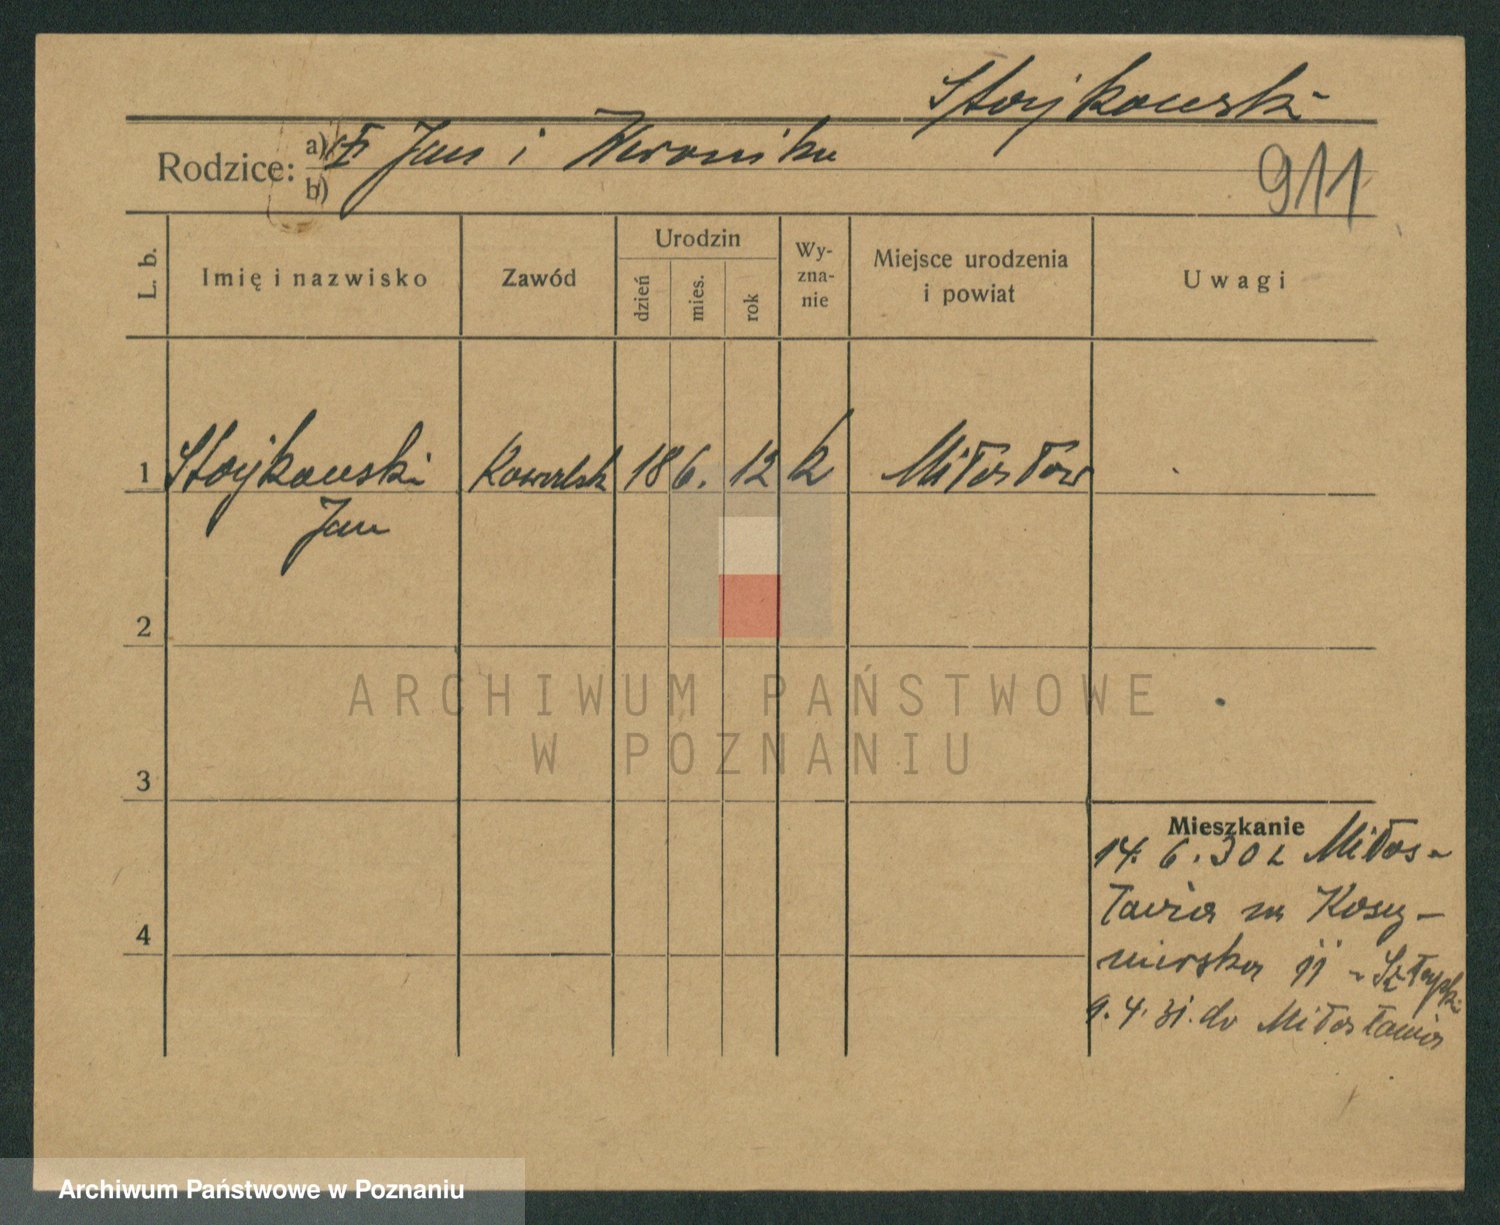 Stojkowski
Rodzice: a) Jan i Weronika
b)
911
L. b.
Imię i nazwisko
Zawód
Urodzin
dzień
mies.
rok
Wy-
zna-
nie
Miejsce urodzenia
i powiat
Uwagi
1 Stojkowski Kowalsk 18 6. 12 k Miłosław
Jan
2
3
4
Mieszkanie
14. 6. 30 z Miłos-
ławia na Kosy-
nierska 11 -
9. 4. 31. do Miłosławia
ARCHIWUM PAŃSTWOWE
W POZNANIU
Archiwum Państwowe w Poznaniu